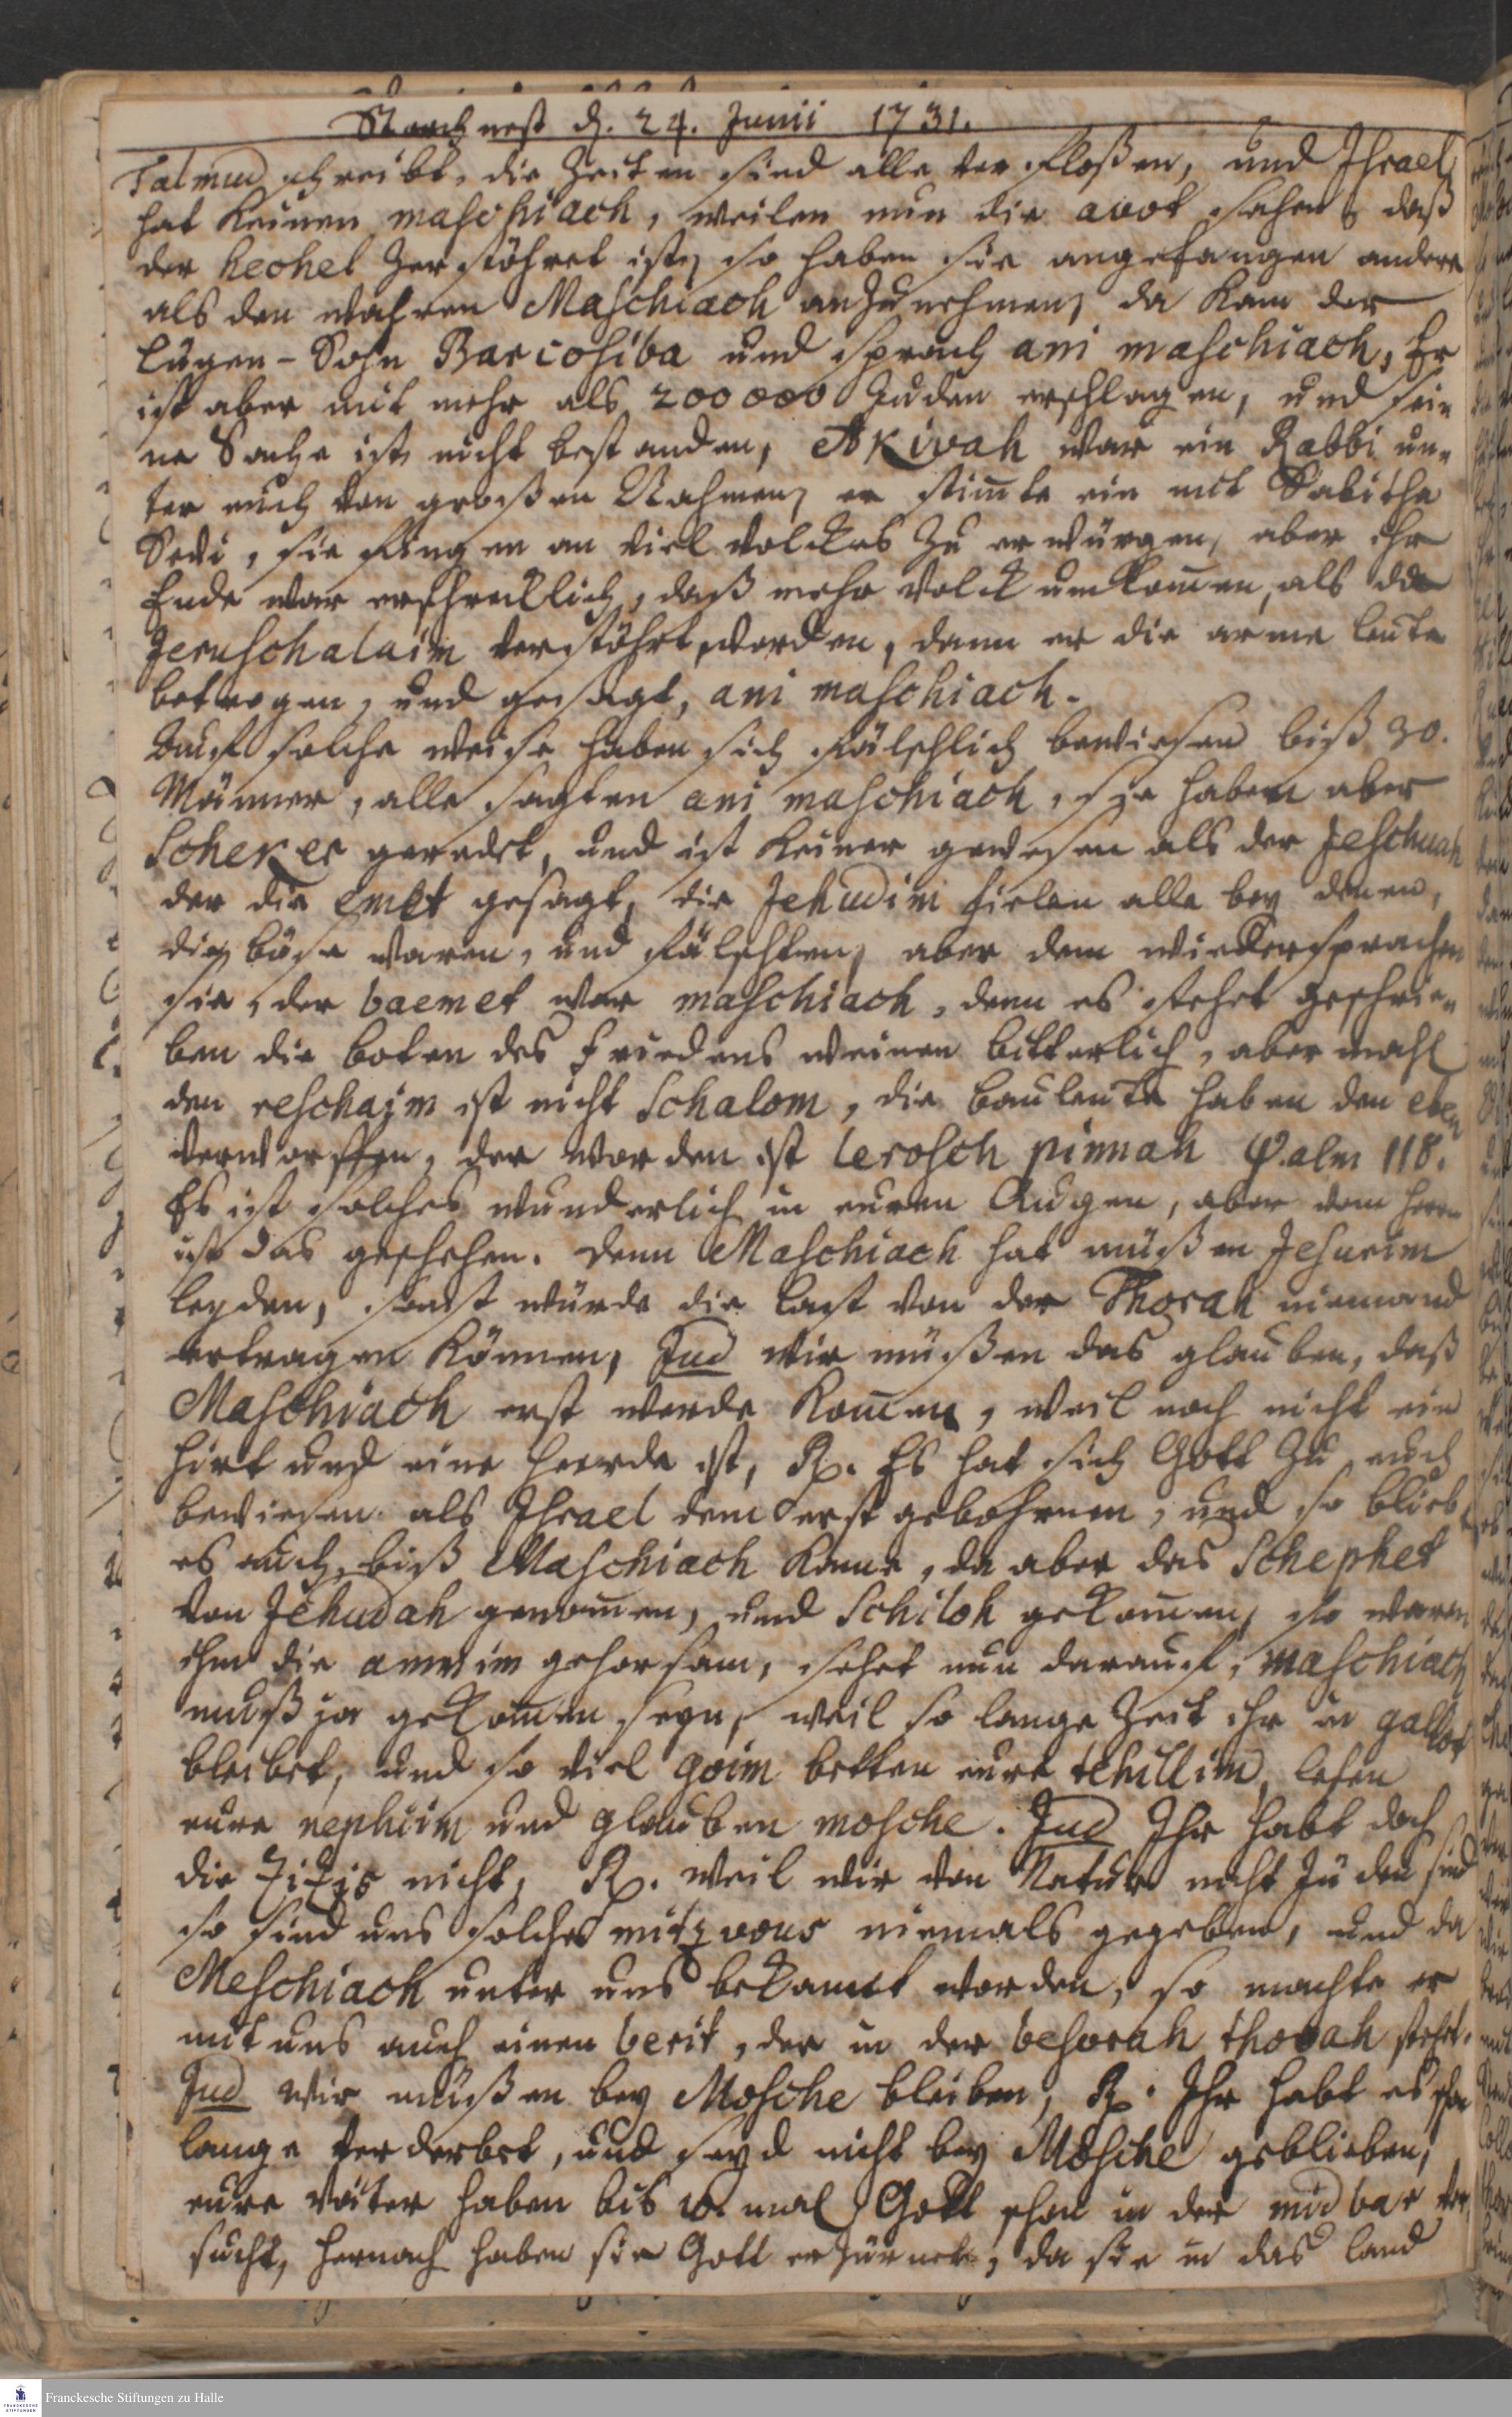 Storchnest d. 24. Junii 1731.
Talmud schreibt, die Zeiten sind alle verfloßen, und Jsrael
hat keinen maschiach, weilen nun die avot sahen, daß
der hechel zerstöhret ist, so haben sie angefangen andere
als den wahren Maschiach anzunehmen, da kam der
Lügen-Sohn Barcosiba und sprach ani maschiach, Er
ist aber mit mehr als 200000 Juden erschlagen, und sei-
ne Sache ist nicht bestanden, Akivah war ein Rabbi un-
ter euch von großen Nahmen, er stim̄te ein mit Sabitha
Sevi, sie fingen an viel Volckes zu erwürgen, aber ihr
Ende war erschrecklich, daß mehr Volck umkom̄en, als da
Jeruschalaim verstöhrt worden, denn er die arme Leute
betrogen, und gesagt, ani maschiach.
Auf solche weise haben sich fälschlich bewiesen biß 30.
Männer, alle sagten ani maschiach, sie haben aber
Scheker geredet, und ist keiner gewesen als der Jeschuah
der die emet gesagt, die Jehudim fielen alle bey denen,
die böse waren, und fälschten, aber dem wiedersprachen
sie, der baemet war maschiach, denn es stehet geschrie-
ben die boten des Friedens weinen bitterlich, abermahl
den reschajm ist nicht Schalom, die Bauleute haben den eben
verworffen, der worden ist lerosch pinnah Psalm 118.
Es ist solches wunderlich in euren Augen, aber vom Herrn
ist das geschehen. denn Maschiach hat müßen Jesurim
leyden, sonst würde die Last von der Thorah niemand
ertragen können, Jud wir müßen das glauben, daß
Maschiach erst werde kom̄en, weil noch nicht ein
Hirt und eine Heerde ist, R. Es hat sich Gott zu euch
bewiesen als Jsrael dem erstgebohrnen, und so blieb
es auch, biß Maschiach kame, da aber das Schephet
von Jehudah genom̄en, und Schiloh gekom̄en, so waren
ihm die ammim gehorsam, sehet nun darauf, maschiach
muß ja gekom̄en seyn, weil so lange Zeit ihr in gallot
bleibet, und so viel goim betten eure tehillim, lesen
eure nephiim und glauben mosche. Jud Ihr habt doch
die Zizis nicht, R. weil wir von Natur nicht Juden sind
so sind uns solche mitzvous niemals gegeben, und da
Meschiach unter uns bekannt worden, so machte er
mit uns auch einen berit, der in der besorah thovah stehet.
Jud wir müßen bey Mosche bleiben, R. Ihr habt es schon
lange verderbet, und seyd nicht bey Mosche geblieben,
eure Väter haben bis 10. mal Gott schon in der midbar ver-
sucht, hernach haben sie Gott erzürnet, da sie in das Land
Franckesche Stiftungen zu Halle